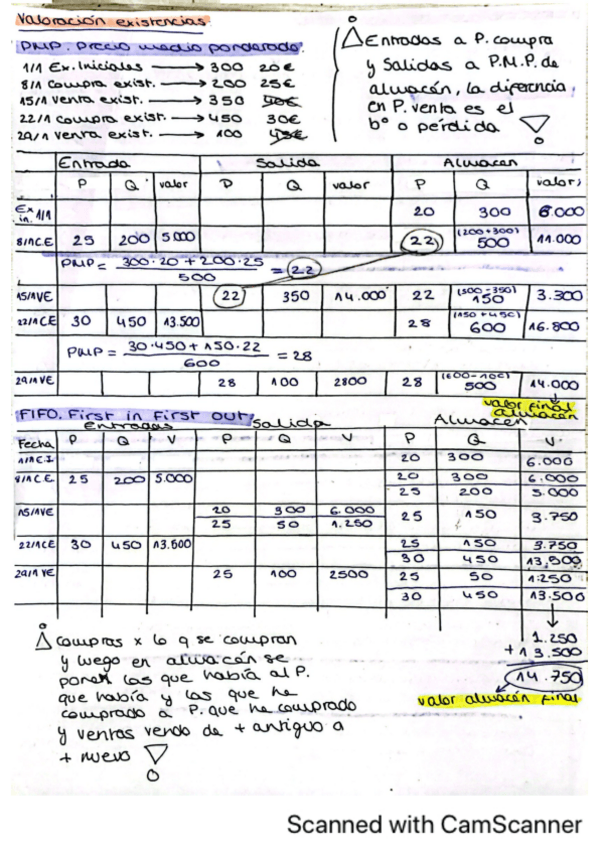 Valoración existencias
PMP. Precio medio ponderado.
1/1 Ex. Iniciales → 300 20€
8/1 compra exist. → 200 25€
15/1 venta exist. → 350
22/1 compra exist. → 450 30€
29/1 venta exist. → 100 45€
Entradas a P. compra
y Salidas a P.M.P. de
almacén, la diferencia
en P. venta es el
bº o pérdida
Entrada Salida Almacen
P Q valor P Q valor P Q valor
Ex. in. 1/1 20 300 6.000
8/1 C.E 25 200 5000 22 (200+300) 500 11.000
PMP = 300·20 + 200·25 / 500 = 22
15/1 VE 22 350 14.000 22 (500-350) 150 3.300
22/1 CE 30 450 13.500 28 (150+450) 600 16.800
PMP = 30·450 + 150·22 / 600 = 28
29/1 VE 28 100 2800 28 (600-100) 500 14.000
valor final
almacén
FIFO. First in First out.
Entradas Salida Almacen
Fecha P Q V P Q V P Q V
1/1 E.I 20 300 6.000
8/1 C.E 25 200 5.000 20 300 6.000
25 200 5.000
15/1 VE 20 300 6.000 25 150 3.750
25 50 1.250
22/1 CE 30 450 13.500 25 150 3.750
30 450 13.500
29/1 VE 25 100 2500 25 50 1.250
30 450 13.500
1.250
+13.500
14.750
valor almacén final
compras x lo q se compran
y luego en almacén se
ponen las que había al P.
que había y las que he
comprado a P. que he comprado
y ventas vendo de + antiguo a
+ nuevo
Scanned with CamScanner